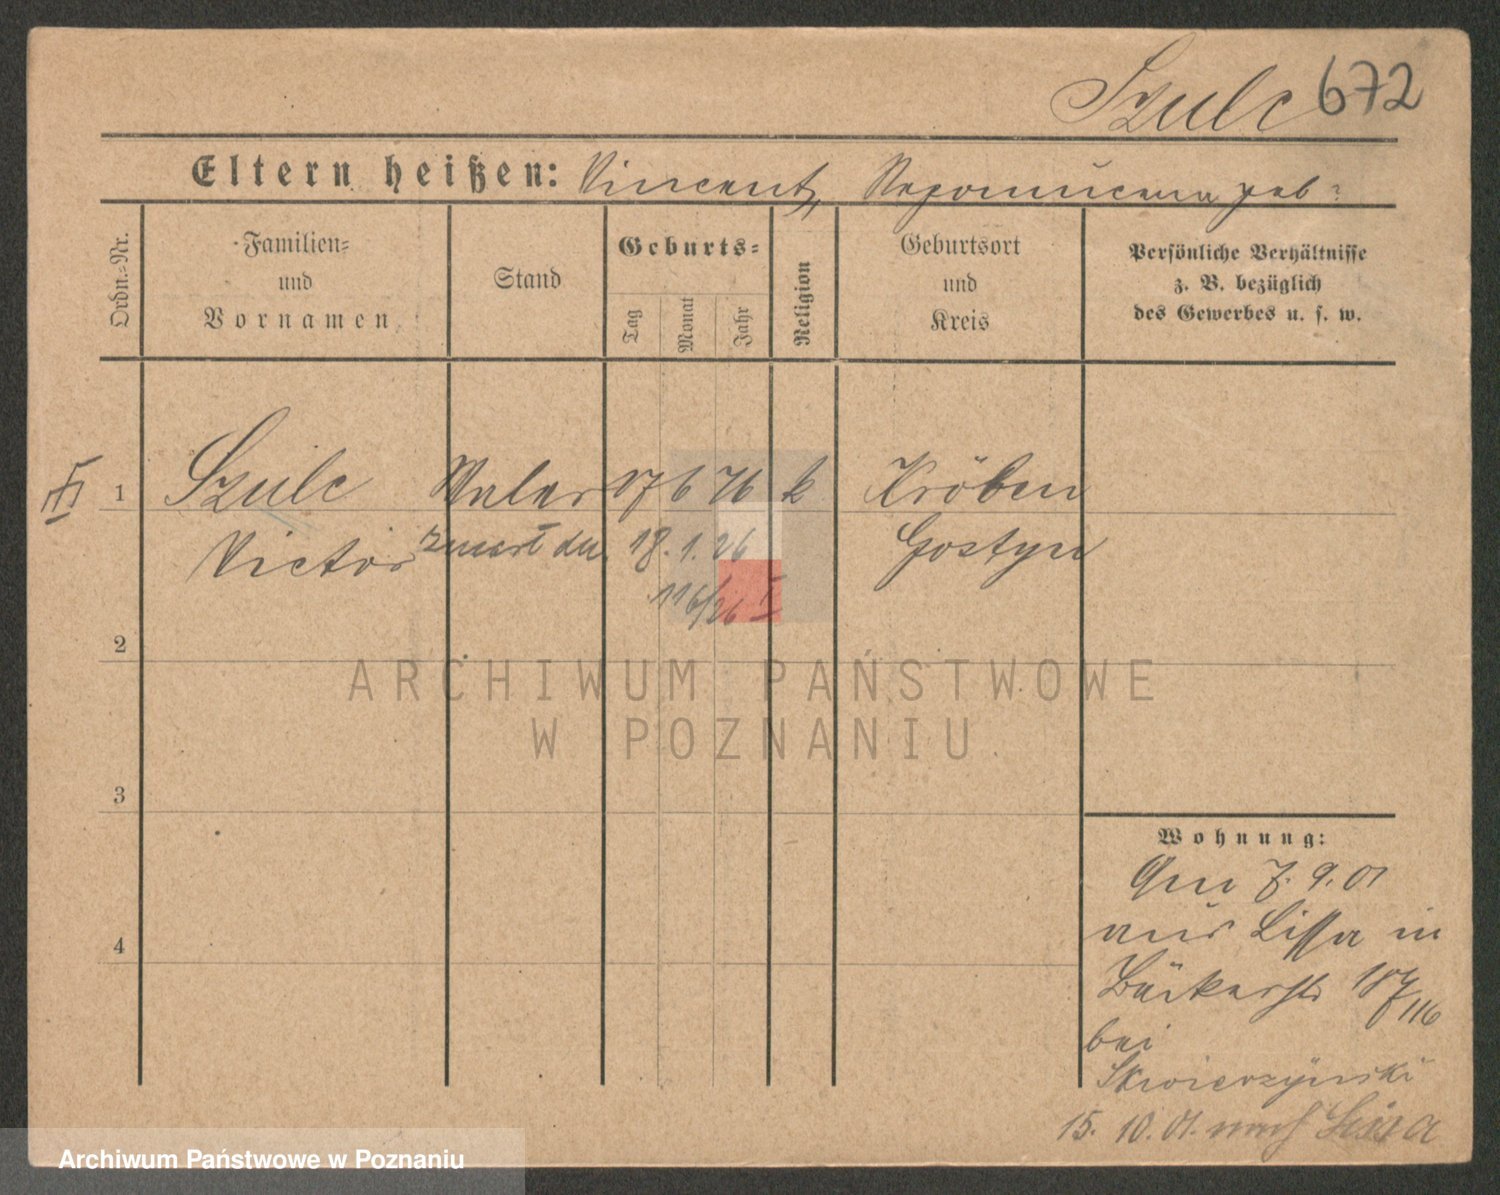 Szulc 672
Eltern heißen: Vincent, Nepomucena geb:
Ordn.=Nr.
Familien=
und
Vornamen
Stand
Geburts=
Tag
Monat
Jahr
Religion
Geburtsort
und
Kreis
Persönliche Verhältnisse
z. B. bezüglich
des Gewerbes u. s. w.
1 Szulc Maler 17 6 76 k Kröben
Victor zmarł dn. 18. 1. 26 Gostyn
116/26 I
2
3
4
Wohnung:
Am 7. 9. 01
aus Lissa in
Bäckerstr 18/116
bei
Skwierzynski
15. 10. 01. nach Lissa
ARCHIWUM PAŃSTWOWE
W POZNANIU
Archiwum Państwowe w Poznaniu